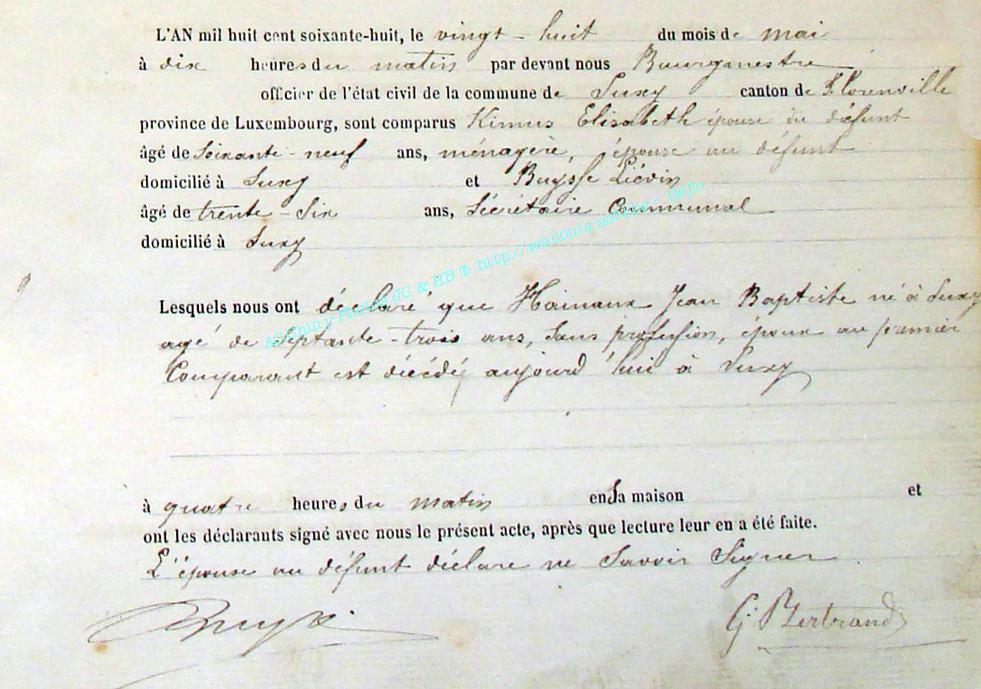 L'AN mil huit cent soixante-huit, le vingt-huit du mois de mai
à dix heures du matin par devant nous Bourgmestre
officier de l'état civil de la commune de Suxy canton de Florenville
province de Luxembourg, sont comparus Kimus Elisabeth épouse du défunt
âgé de Soixante-neuf ans, ménagère, épouse au défunt
domicilié à Suxy et Buysse Liévin
âgé de trente-Six ans, Sécrétaire Communal
domicilié à Suxy
Lesquels nous ont déclaré que Hainaux Jean Baptiste né à Suxy
agé de Septante-trois ans, Sans profession, époux au premier
Comparant est décédé aujourd'hui à Suxy
à quatre heures du matin en Sa maison et
ont les déclarants signé avec nous le présent acte, après que lecture leur en a été faite.
L'épouse au défunt déclare ne Savoir Signer
Buysse G. Bertrand
AC Chiny Photos JG & HB © http://wallonia-asbl.be